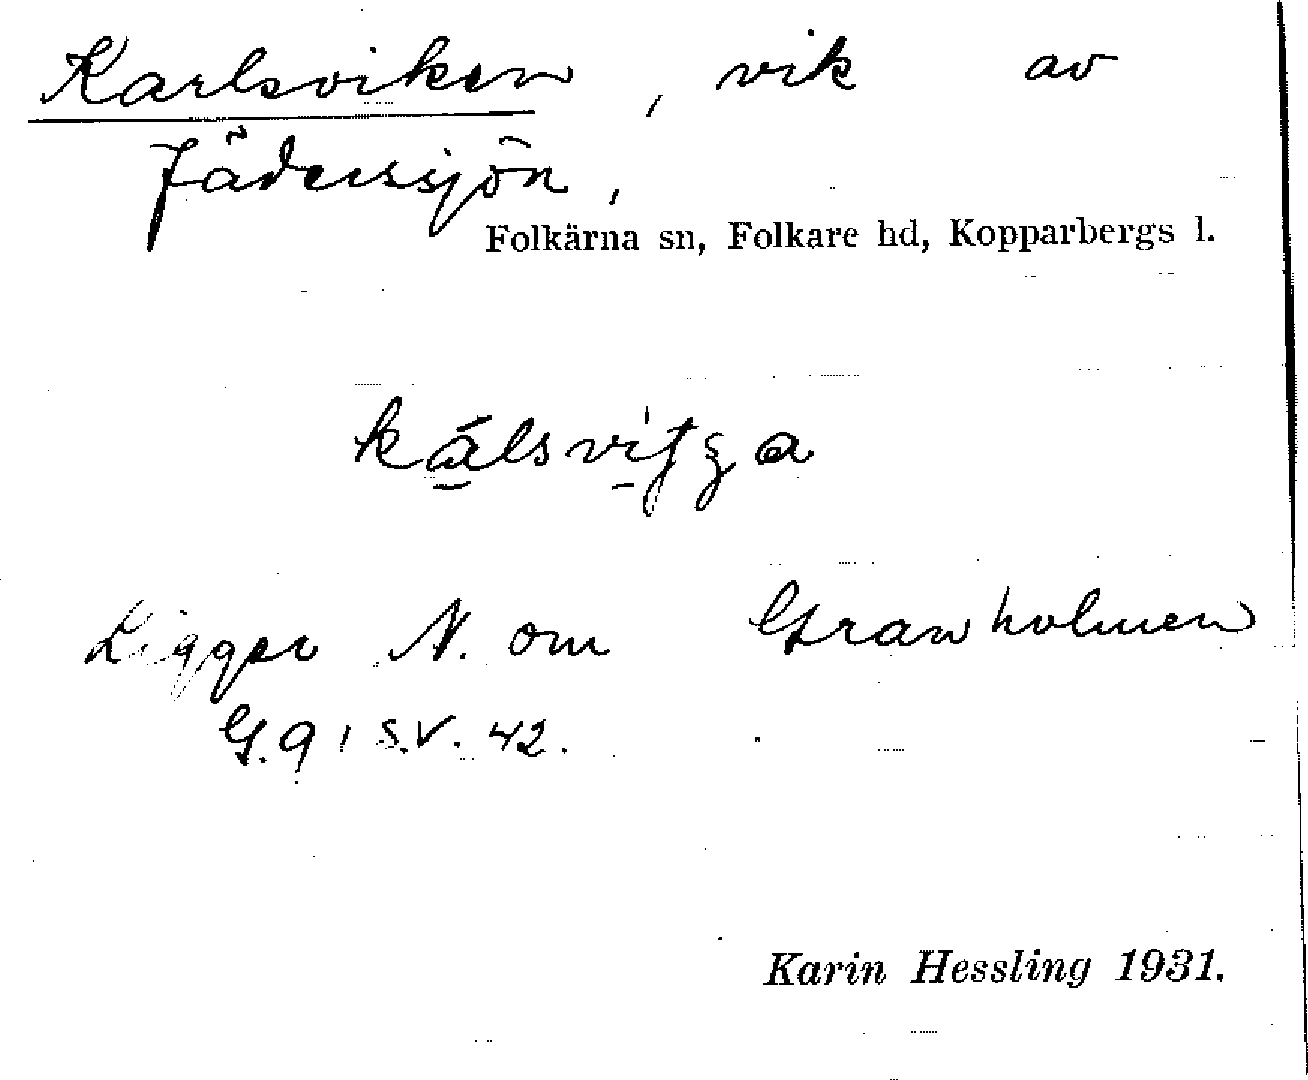 Karlsviken, vik av
Jäderssjön,
Folkärna sn, Folkare hd, Kopparbergs l.
Ligger N. om Granholmen
G. 9 i S.V. 42.
Karin Hessling 1931.